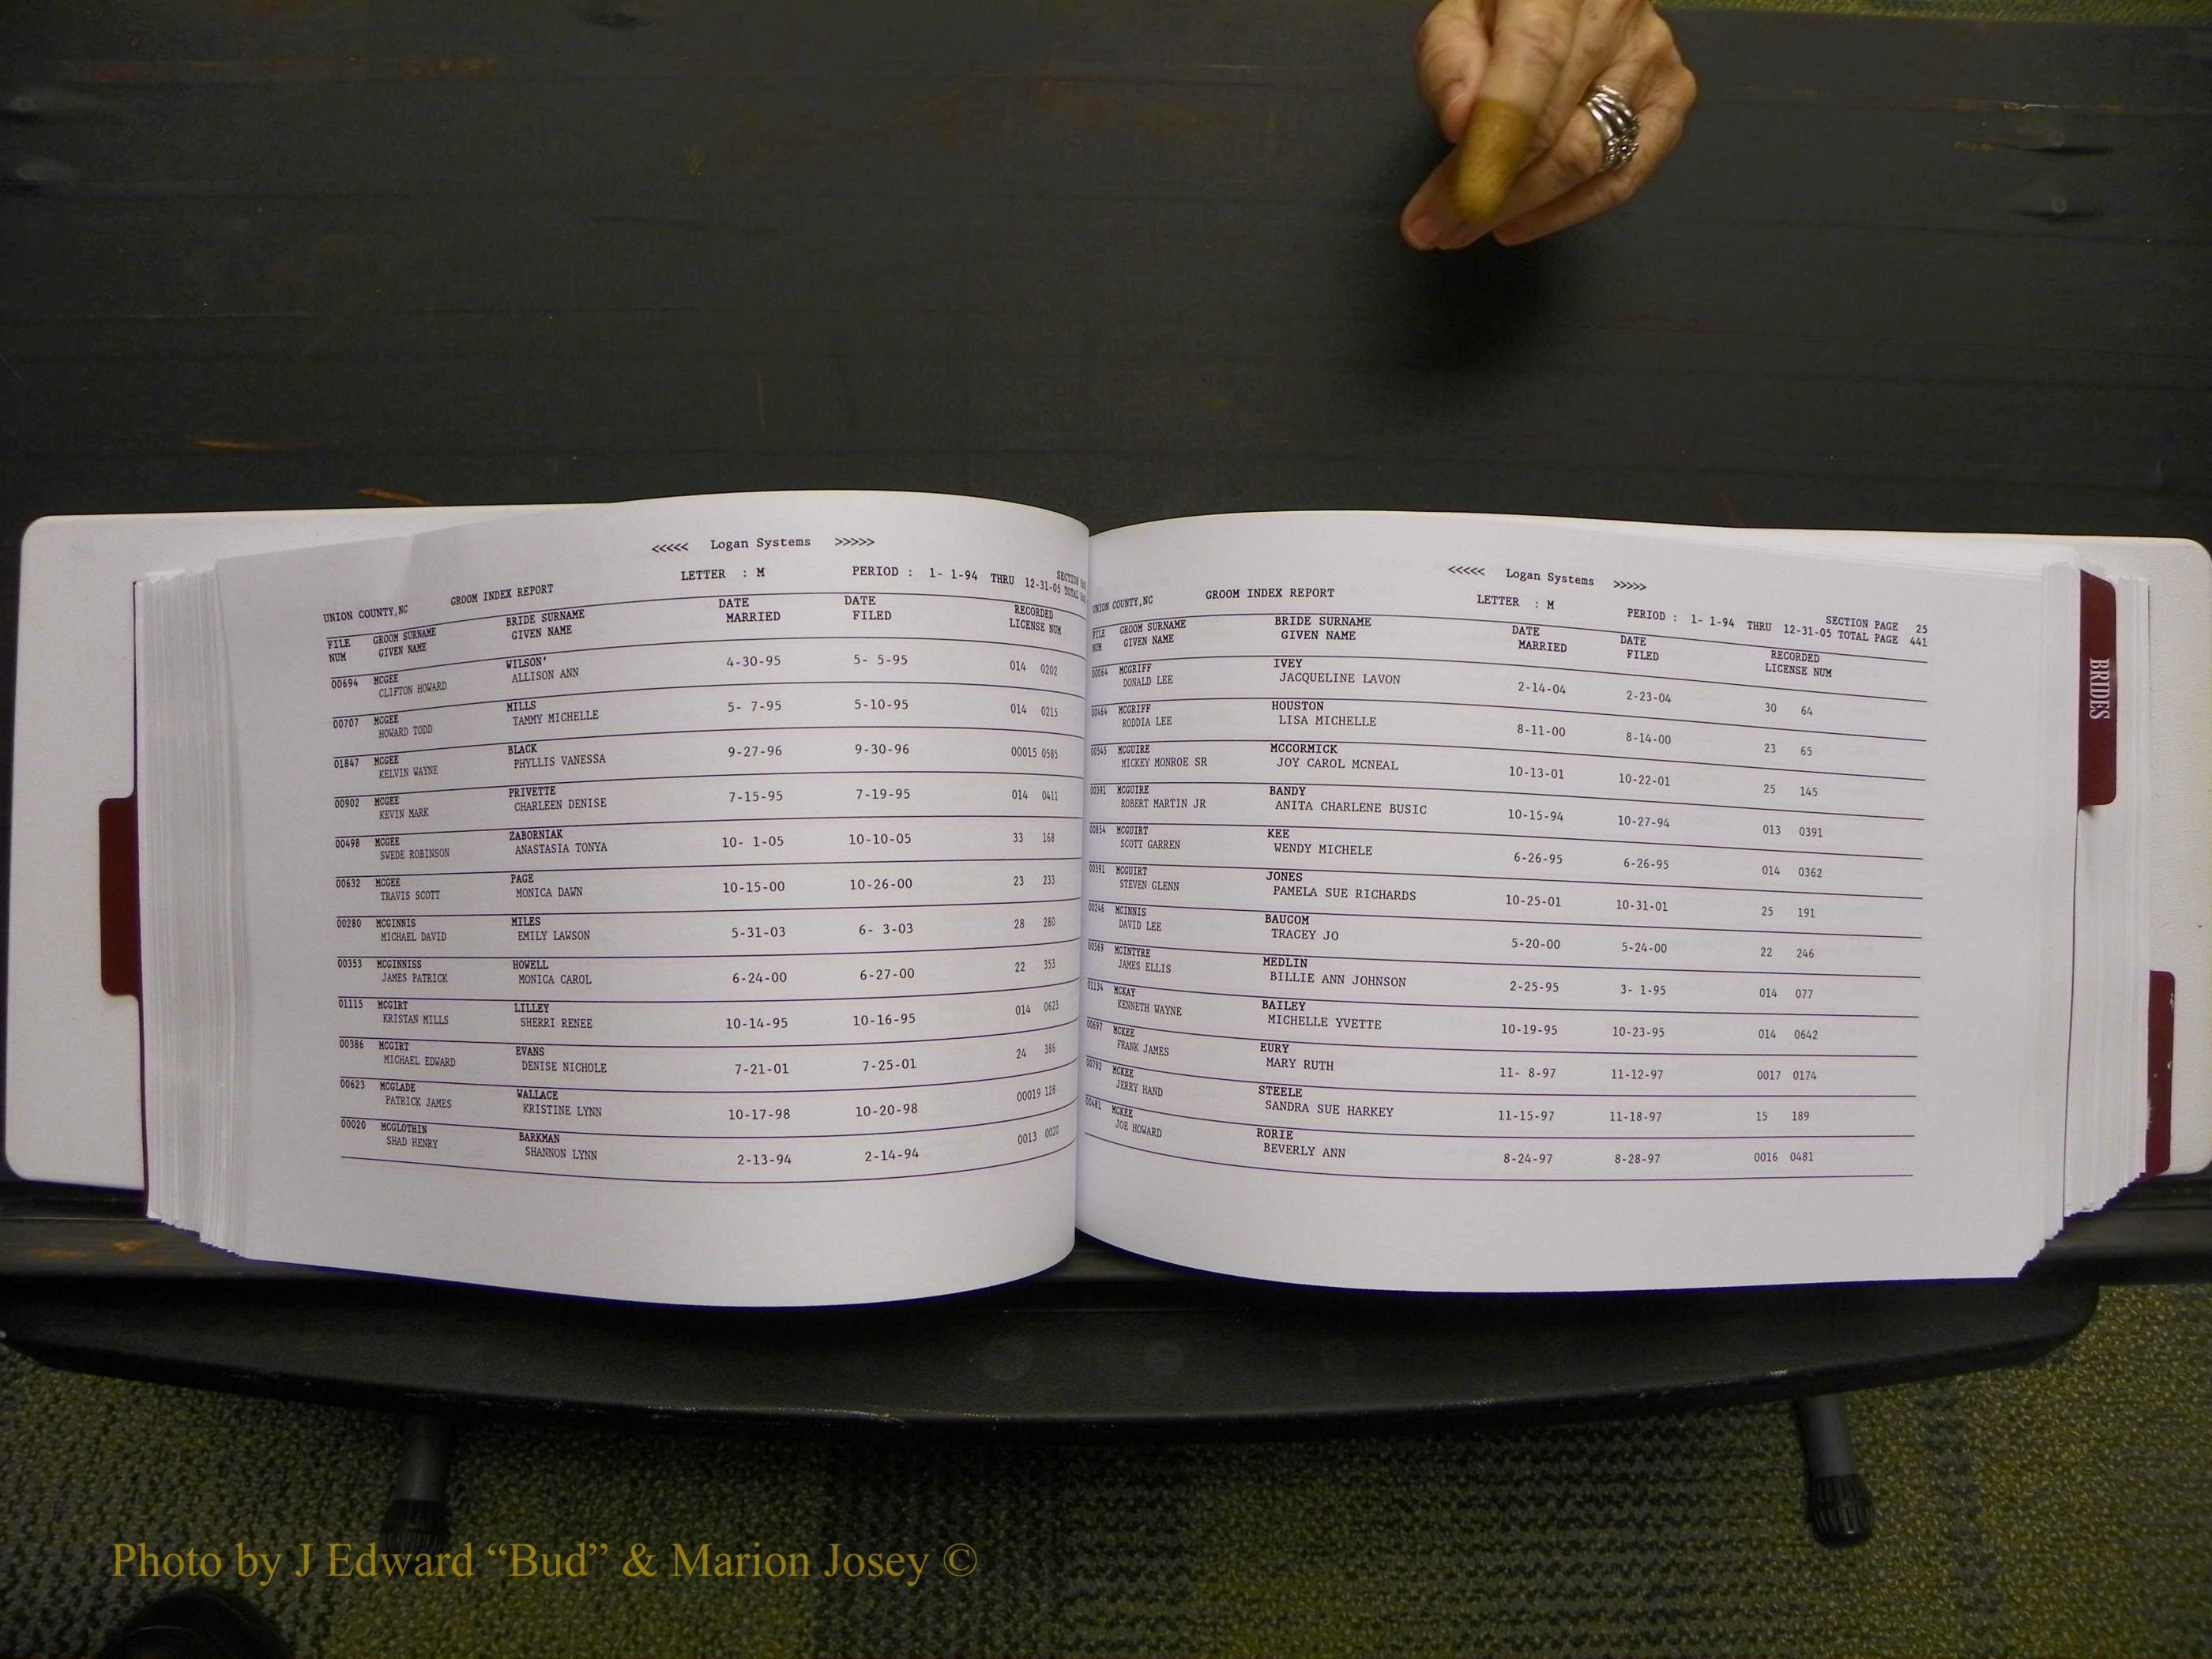 <<<<< Logan Systems >>>>>
LETTER : M PERIOD : 1- 1-94 THRU 12-31-05
UNION COUNTY,NC GROOM INDEX REPORT
FILE GROOM SURNAME BRIDE SURNAME DATE DATE RECORDED
NUM GIVEN NAME GIVEN NAME MARRIED FILED LICENSE NUM
00694 MCGEE WILSON'
CLIFTON HOWARD ALLISON ANN 4-30-95 5- 5-95 014 0202
00707 MCGEE MILLS
HOWARD TODD TAMMY MICHELLE 5- 7-95 5-10-95 014 0215
01847 MCGEE BLACK
KELVIN WAYNE PHYLLIS VANESSA 9-27-96 9-30-96 00015 0585
00902 MCGEE PRIVETTE
KEVIN MARK CHARLEEN DENISE 7-15-95 7-19-95 014 0411
00498 MCGEE ZABORNIAK
SWEDE ROBINSON ANASTASIA TONYA 10- 1-05 10-10-05 33 168
00632 MCGEE PAGE
TRAVIS SCOTT MONICA DAWN 10-15-00 10-26-00 23 233
00280 MCGINNIS MILES
MICHAEL DAVID EMILY LAWSON 5-31-03 6- 3-03 28 280
00353 MCGINNISS HOWELL
JAMES PATRICK MONICA CAROL 6-24-00 6-27-00 22 353
01115 MCGIRT LILLEY
KRISTAN MILLS SHERRI RENEE 10-14-95 10-16-95 014 0623
00386 MCGIRT EVANS
MICHAEL EDWARD DENISE NICHOLE 7-21-01 7-25-01 24 386
00623 MCGLADE WALLACE
PATRICK JAMES KRISTINE LYNN 10-17-98 10-20-98 00019 128
00020 MCGLOTHIN BARKMAN
SHAD HENRY SHANNON LYNN 2-13-94 2-14-94 0013 0020
<<<<< Logan Systems >>>>>
LETTER : M PERIOD : 1- 1-94 THRU 12-31-05 SECTION PAGE 25
UNION COUNTY,NC GROOM INDEX REPORT TOTAL PAGE 441
FILE GROOM SURNAME BRIDE SURNAME DATE DATE RECORDED
NUM GIVEN NAME GIVEN NAME MARRIED FILED LICENSE NUM
00064 MCGRIFF IVEY
DONALD LEE JACQUELINE LAVON 2-14-04 2-23-04 30 64
00464 MCGRIFF HOUSTON
RODDIA LEE LISA MICHELLE 8-11-00 8-14-00 23 65
00545 MCGUIRE MCCORMICK
MICKEY MONROE SR JOY CAROL MCNEAL 10-13-01 10-22-01 25 145
00391 MCGUIRE BANDY
ROBERT MARTIN JR ANITA CHARLENE BUSIC 10-15-94 10-27-94 013 0391
00854 MCGUIRT KEE
SCOTT GARREN WENDY MICHELE 6-26-95 6-26-95 014 0362
00591 MCGUIRT JONES
STEVEN GLENN PAMELA SUE RICHARDS 10-25-01 10-31-01 25 191
00246 MCINNIS BAUCOM
DAVID LEE TRACEY JO 5-20-00 5-24-00 22 246
00569 MCINTYRE MEDLIN
JAMES ELLIS BILLIE ANN JOHNSON 2-25-95 3- 1-95 014 077
01134 MCKAY BAILEY
KENNETH WAYNE MICHELLE YVETTE 10-19-95 10-23-95 014 0642
00697 MCKEE EURY
FRANK JAMES MARY RUTH 11- 8-97 11-12-97 0017 0174
00792 MCKEE STEELE
JERRY HAND SANDRA SUE HARKEY 11-15-97 11-18-97 15 189
00481 MCKEE RORIE
JOE HOWARD BEVERLY ANN 8-24-97 8-28-97 0016 0481
BRIDES
Photo by J Edward “Bud” & Marion Josey ©